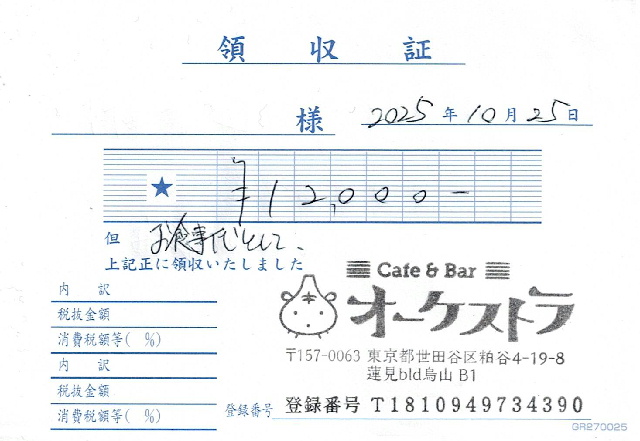 領収証
様 2025年10月25日
★ ¥12,000-
但 お食事代として、
上記正に領収いたしました
内訳
税抜金額
消費税額等( %)
内訳
税抜金額
消費税額等( %)
Cafe & Bar
オーケストラ
〒157-0063 東京都世田谷区粕谷4-19-8
蓮見bld烏山 B1
登録番号 登録番号 T1810949734390
GR270025